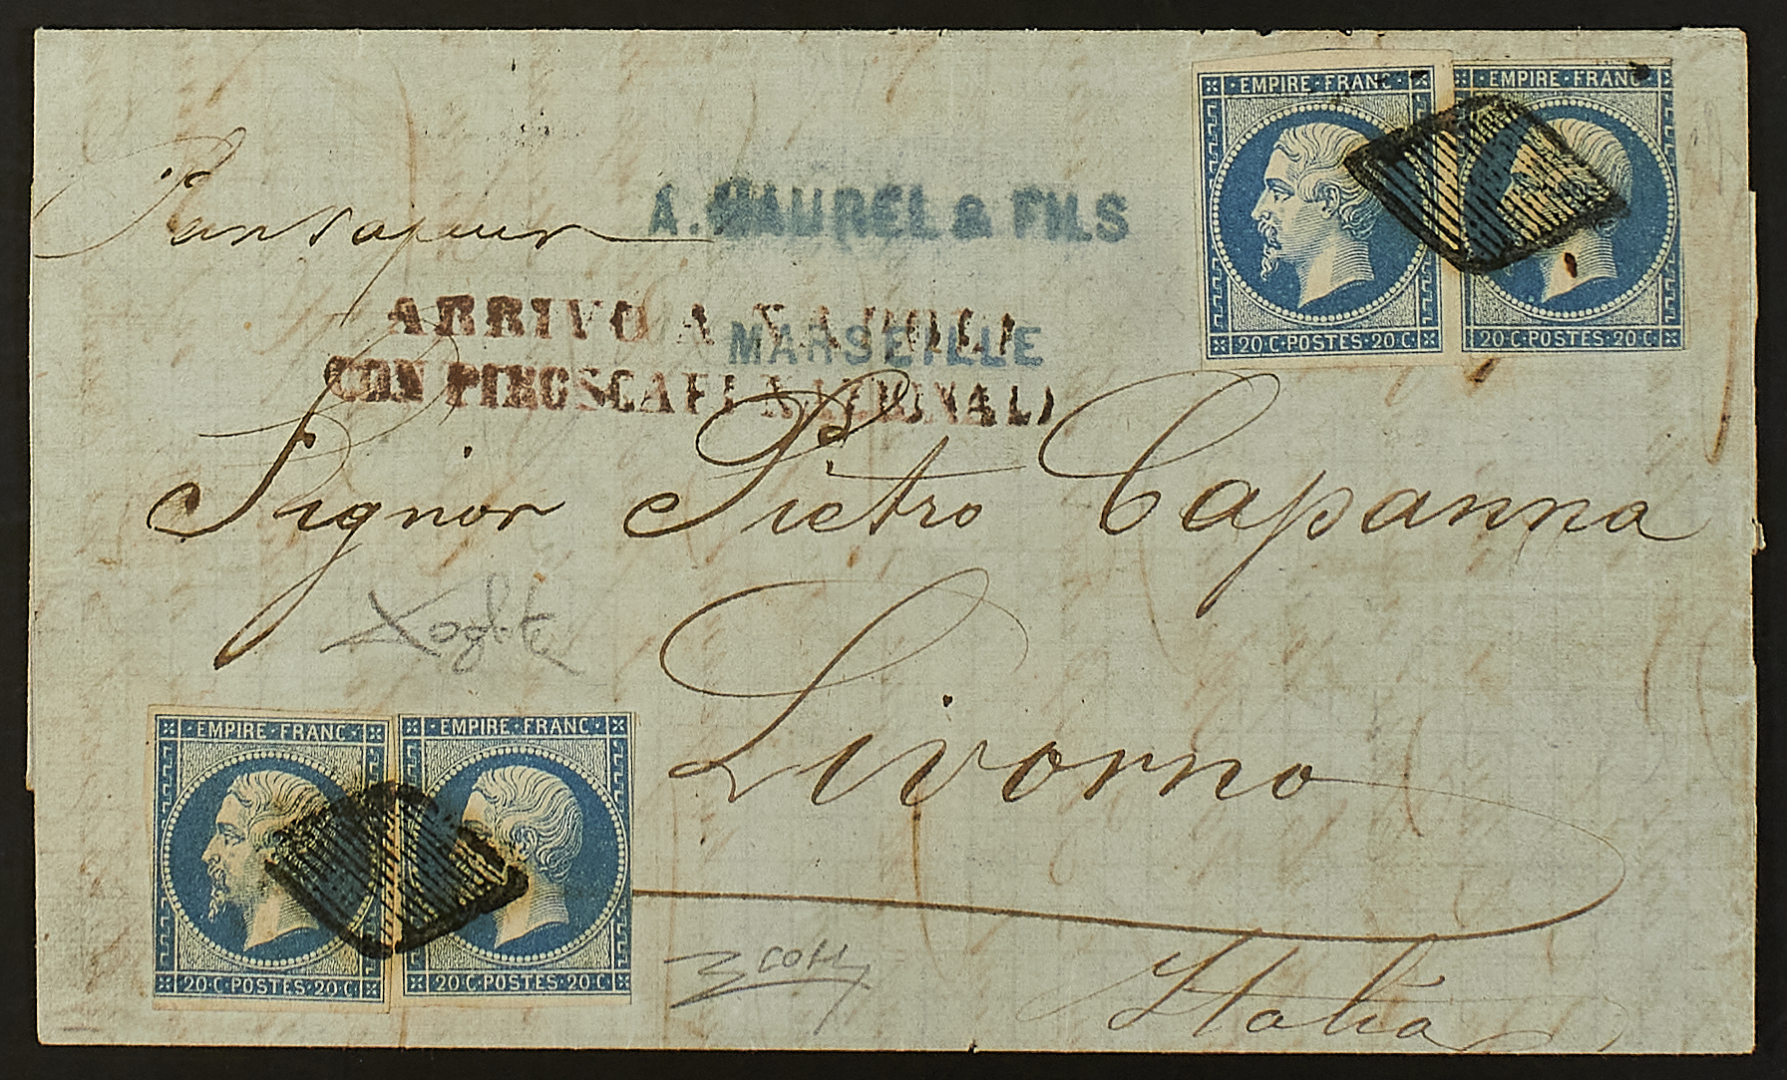 EMPIRE·FRANC· EMPIRE·FRANC
20·C·POSTES·20·C· 20·C·POSTES·20·C·
Par vapeur
A. MAUREL & FILS
MARSEILLE
ARRIVO A NAPOLI
CON PIROSCAFI NAZIONALI
Signor Pietro Capanna
Livorno
Italia
·EMPIRE·FRANC· ·EMPIRE·FRANC·
20·C·POSTES·20·C· 20·C·POSTES·20·C·